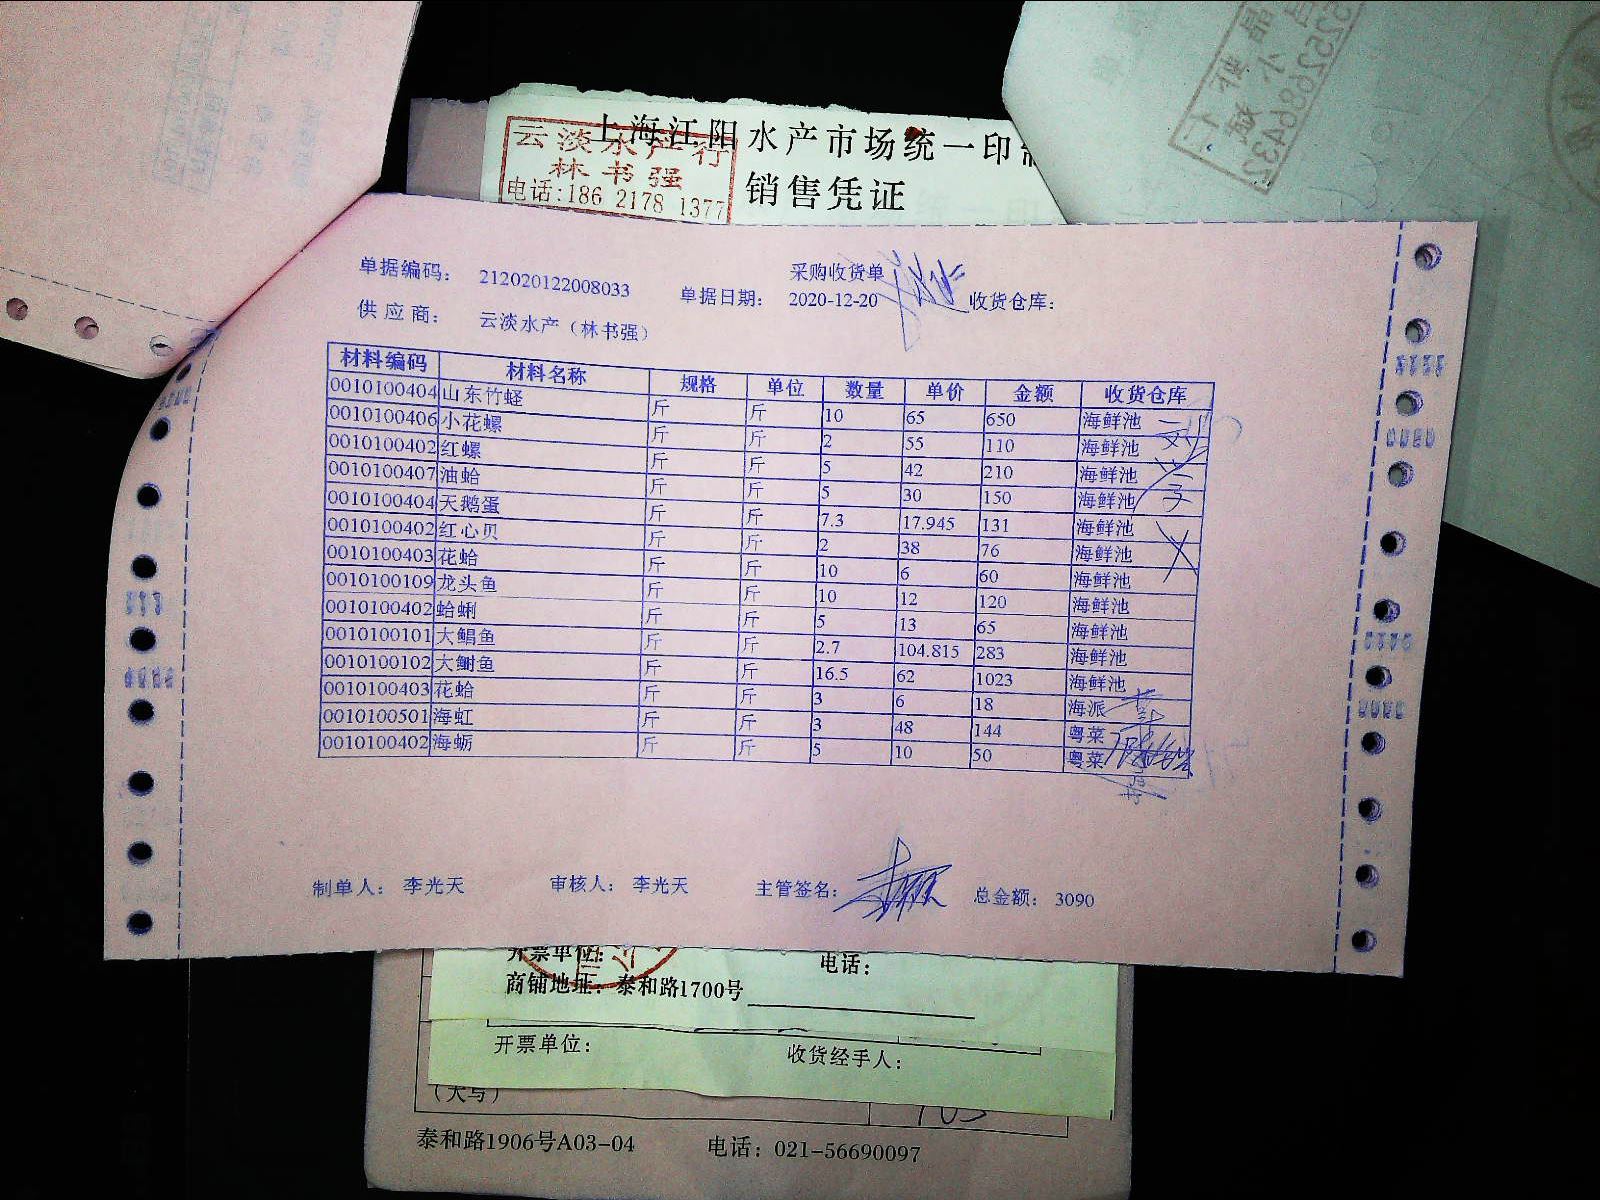 上海江阳水产市场统一印制
云淡水产行
林书强
电话:186 2178 1377
销售凭证
采购收货单
单据编码: 212020122008033 单据日期: 2020-12-20 收货仓库:
供应商: 云淡水产（林书强）
材料编码 材料名称 规格 单位 数量 单价 金额 收货仓库
0010100404 山东竹蛏 斤 斤 10 65 650 海鲜池
0010100406 小花螺 斤 斤 2 55 110 海鲜池
0010100402 红螺 斤 斤 5 42 210 海鲜池
0010100407 油蛤 斤 斤 5 30 150 海鲜池
0010100404 天鹅蛋 斤 斤 7.3 17.945 131 海鲜池
0010100402 红心贝 斤 斤 2 38 76 海鲜池
0010100403 花蛤 斤 斤 10 6 60 海鲜池
0010100109 龙头鱼 斤 斤 10 12 120 海鲜池
0010100402 蛤蜊 斤 斤 5 13 65 海鲜池
0010100101 大鲳鱼 斤 斤 2.7 104.815 283 海鲜池
0010100102 大鲥鱼 斤 斤 16.5 62 1023 海鲜池
0010100403 花蛤 斤 斤 3 6 18 海派
0010100501 海虹 斤 斤 3 48 144 粤菜
0010100402 海蛎 斤 斤 5 10 50 粤菜
制单人: 李光天 审核人: 李光天 主管签名: 总金额: 3090
开票单位: 电话:
商铺地址: 泰和路1700号
开票单位: 收货经手人:
(大写)
泰和路1906号A03-04 电话: 021-56690097